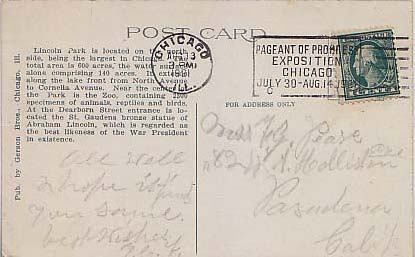 POST CARD
Lincoln Park is located on the north
side, being the largest in Chicago. The
total area is 600 acres, the water surface
alone comprising 140 acres. It extends
along the lake front from North Avenue
to Cornelia Avenue. Near the center of
the Park is the Zoo, containing
specimens of animals, reptiles and birds.
At the Dearborn Street entrance is lo-
cated the St. Gaudens bronze statue of
Abraham Lincoln, which is regarded as
the best likeness of the War President
in existence.
Pub. by Gerson Bros., Chicago, Ill.
CHICAGO
3
PM
1921
ILL.
PAGEANT OF PROGRESS
EXPOSITION
CHICAGO
JULY 30-AUG.14
C
FOR ADDRESS ONLY
Pease
Pasadena
Calif
well
hope
you same.
best wishes